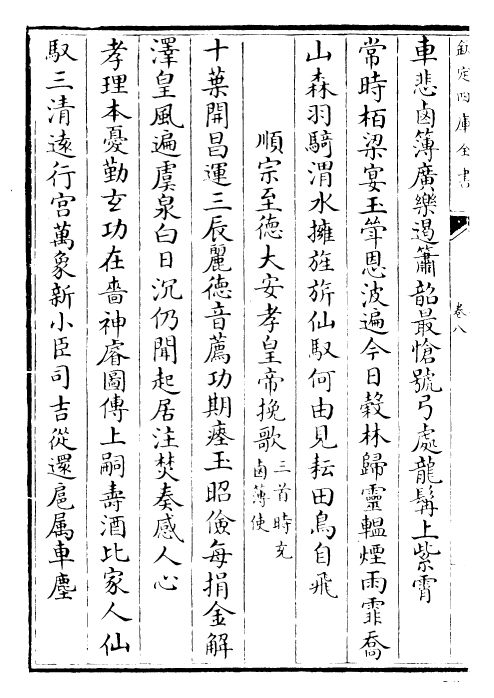 欽定四庫全書
卷八
車悲鹵簿廣樂遏簫韶最愴號弓處龍髯上紫霄
常時栢梁宴玉斝恩波遍今日穀林歸靈轀煙雨霏喬
山森羽騎渭水擁旌旂仙馭何由見耘田鳥自飛
順宗至德大安孝皇帝挽歌三首時充鹵薄使
十葉開昌運三辰麗德音薦功期瘞玉昭儉每捐金解
澤皇風遍虞泉白日沉仍聞起居注焚奏感人心
孝理本憂勤玄功在嗇神睿圖傳上嗣壽酒比家人仙
馭三清遠行宫萬象新小臣司吉從還扈属車塵